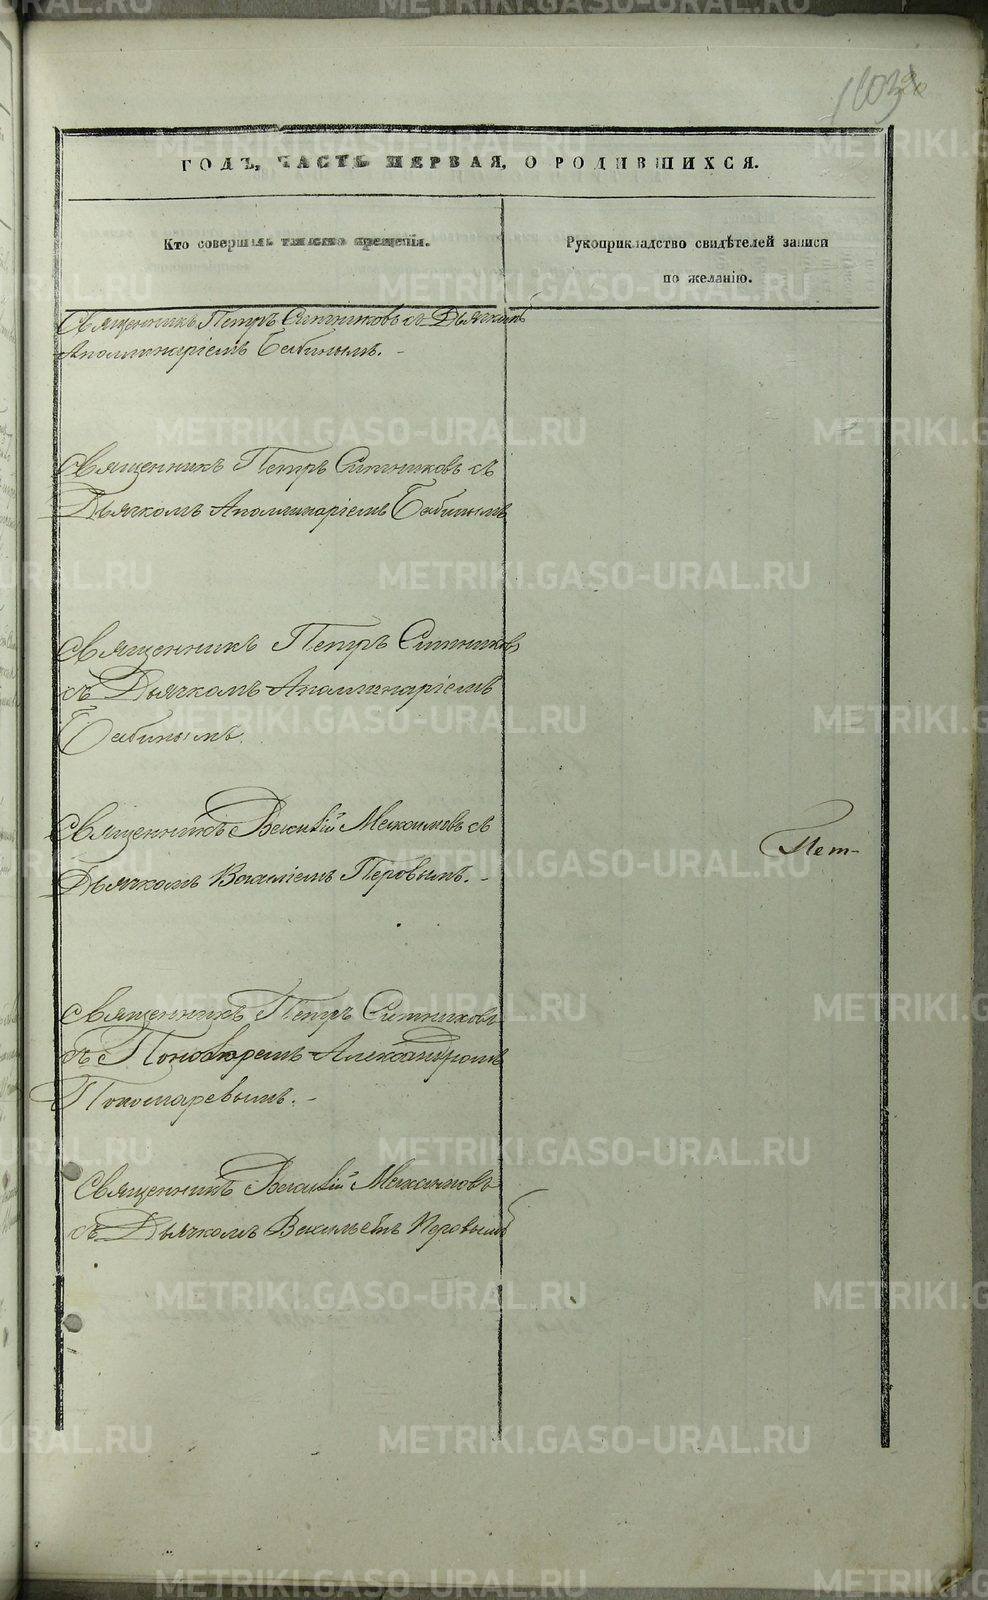 ГОДЪ, ЧАСТЬ ПЕРВАЯ, О РОДИВШИХСЯ.
Кто совершалъ таинство крещенія.
Рукоприкладство свидѣтелей записи
по желанію.
Священникъ Петръ Ситниковъ съ Дьячкомъ
Аполлинаріемъ Бабинымъ. -
Священникъ Петръ Ситниковъ съ
Дьячкомъ Аполлинаріемъ Бабинымъ
Священникъ Петръ Ситниковъ
съ Дьячкомъ Аполлинаріемъ
Бабинымъ.
Священникъ Василій Максимовъ съ
Дьячкомъ Василіемъ Перовымъ. -
Пет-
Священникъ Петръ Ситниковъ
съ Пономаремъ Александромъ
Пономаревымъ. -
Священникъ Василій Максимовъ
съ Дьячкомъ Васильемъ Перовымъ
METRIKI.GASO-URAL.RU